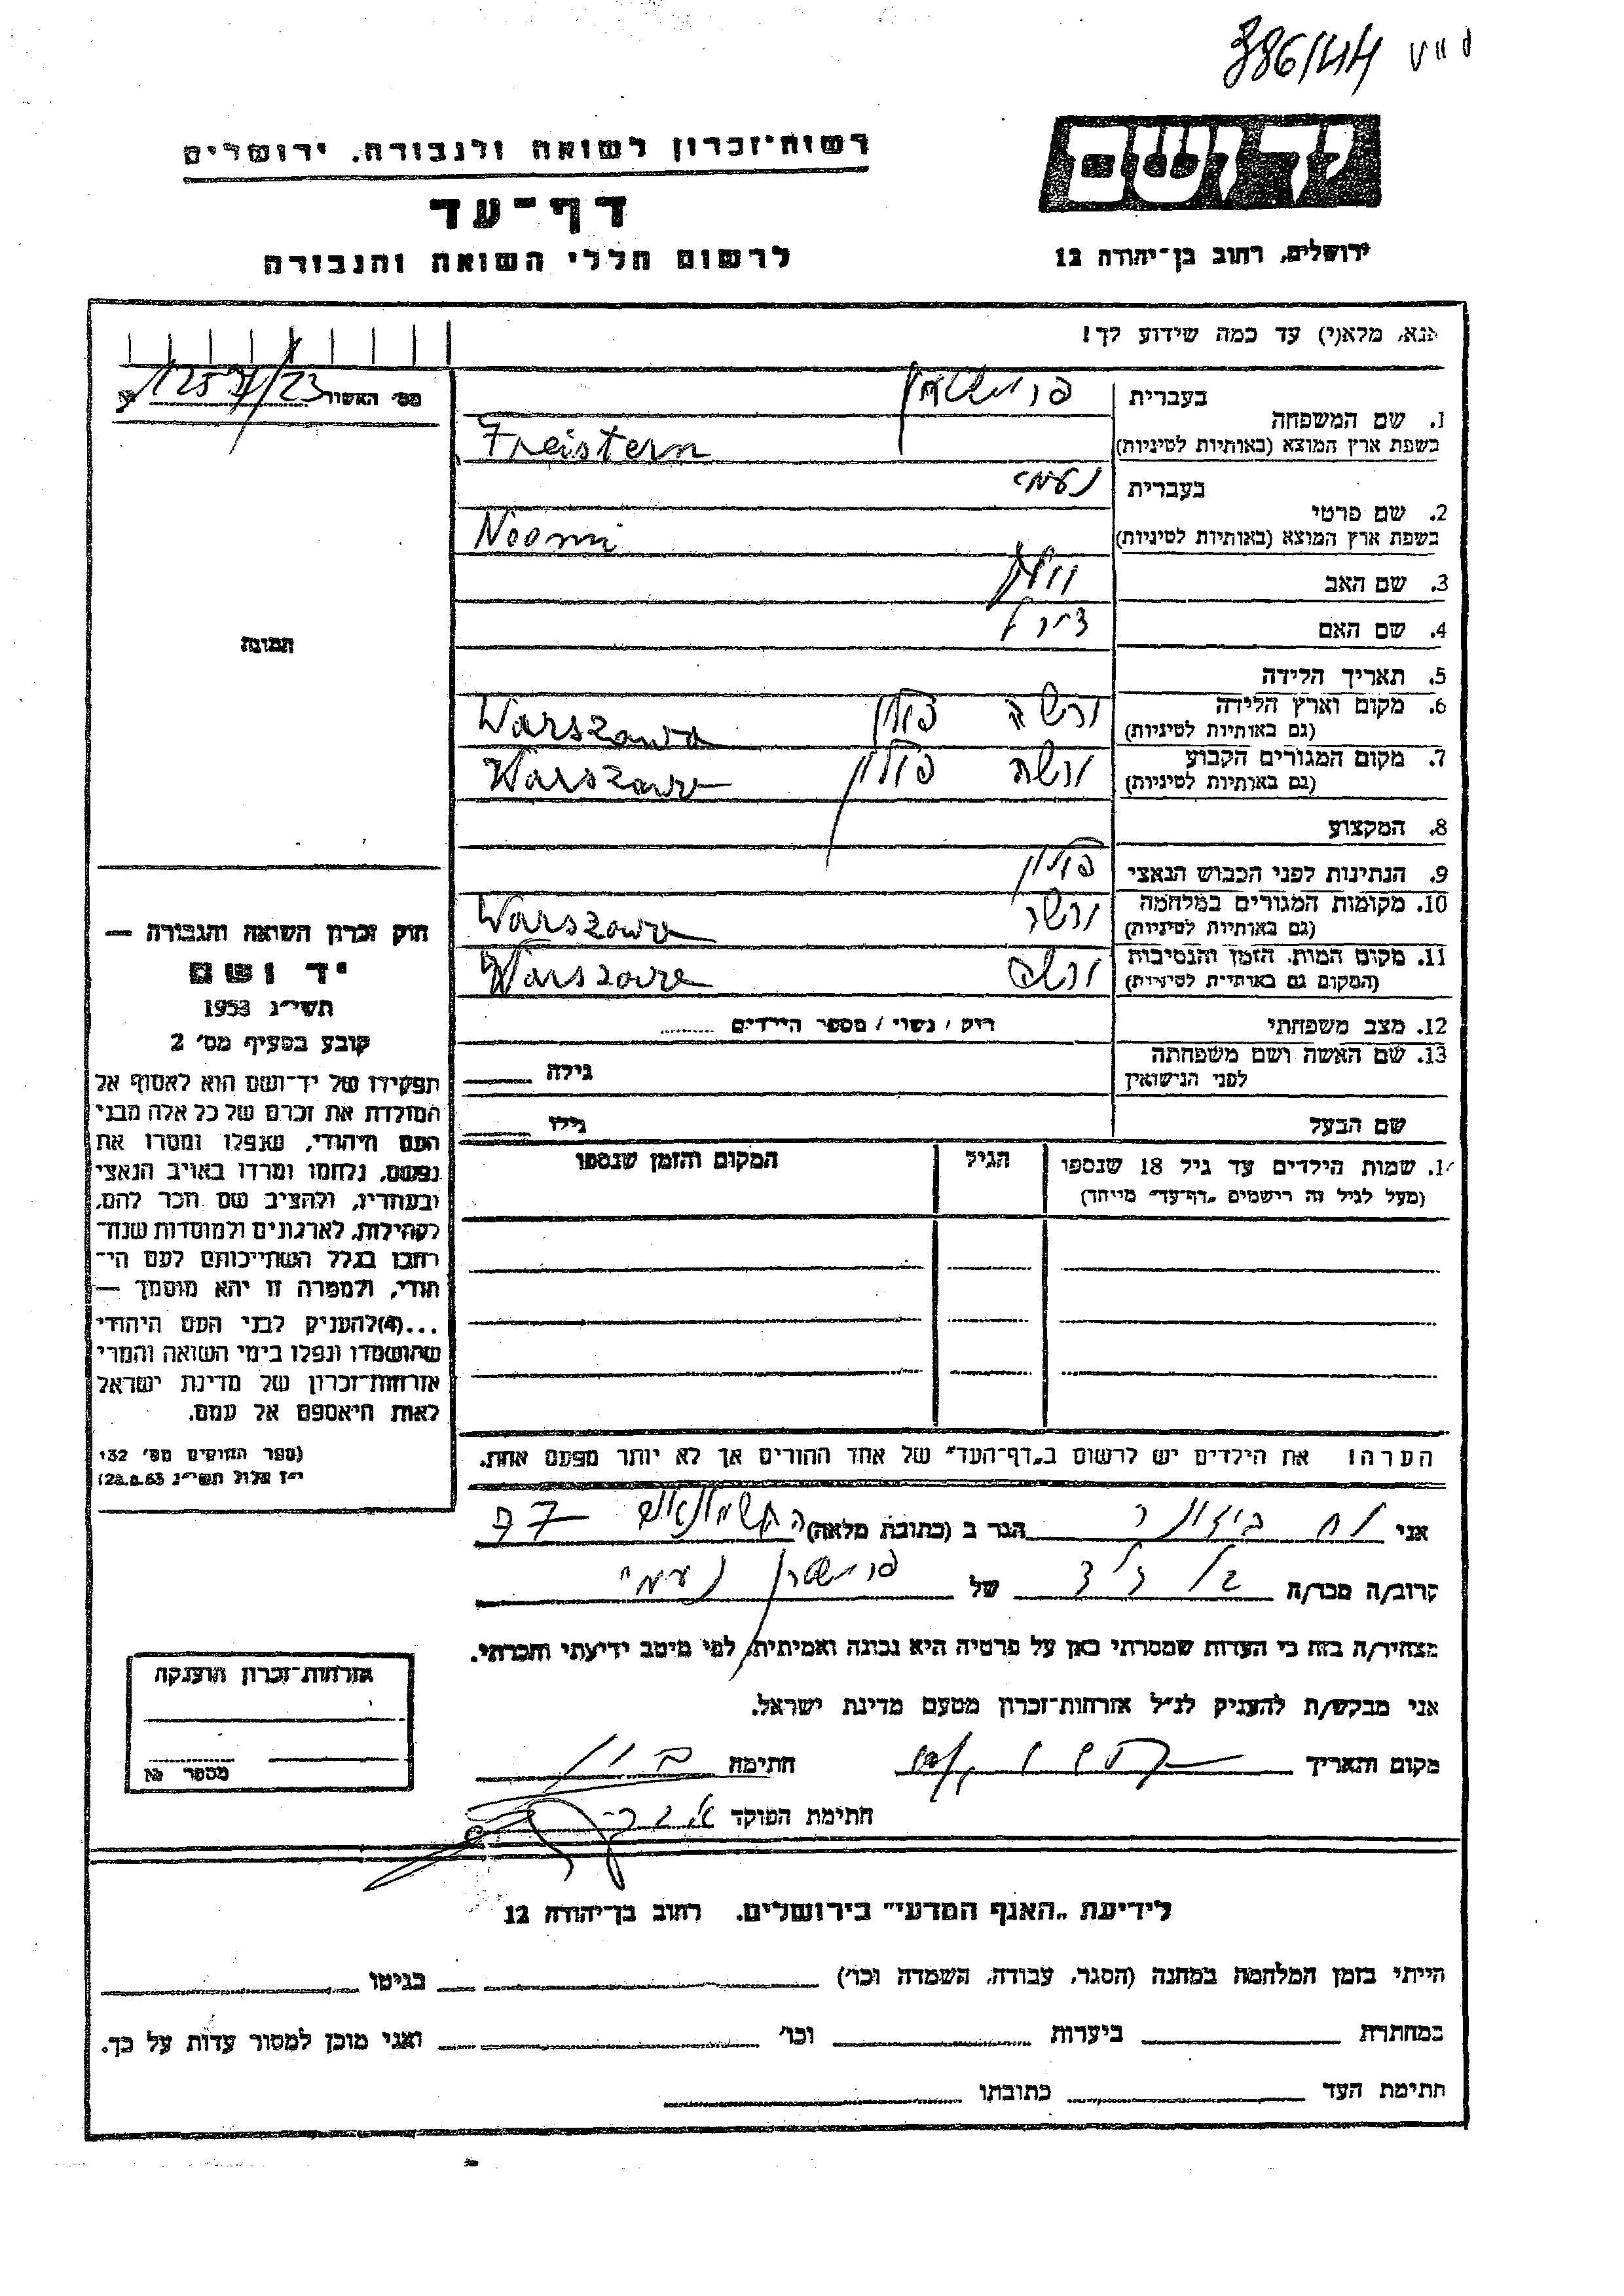 386/44
רשות־זכרון לשואה ולגבורה. ירושלים
דף־עד
לרשום חללי השואה והגבורה
יד ושם
ירושלים, רחוב בן־יהודה 12
אנא, מלא(י) עד כמה שידוע לך!
מס׳ האשור
1. שם המשפחה
בעברית
בשפת ארץ המוצא (באותיות לטיניות) Freistern
2. שם פרטי
בעברית נעמי
בשפת ארץ המוצא (באותיות לטיניות) Noomi
3. שם האב
4. שם האם
5. תאריך הלידה
6. מקום וארץ הלידה ורשה פולין Warszawa
(גם באותיות לטיניות)
7. מקום המגורים הקבוע ורשה פולין Warszawa
(גם באותיות לטיניות)
8. המקצוע
9. הנתינות לפני הכבוש הנאצי פולין
10. מקומות המגורים במלחמה ורשה Warszawa
(גם באותיות לטיניות)
11. מקום המות, הזמן והנסיבות ורשה Warszawa
(המקום גם באותיות לטיניות)
12. מצב משפחתי רווק / נשוי / מספר הילדים
13. שם האשה ושם משפחתה גילה
לפני הנישואין
שם הבעל גילו
14. שמות הילדים עד גיל 18 שנספו הגיל המקום והזמן שנספו
(מעל לגיל זה רישמים „דף־עד״ מייחד)
הערה! את הילדים יש לרשום ב„דף־העד״ של אחד ההורים אך לא יותר מפעם אחת.
תמונה
חוק זכרון השואה והגבורה —
יד ושם
תשי״ג 1953
קובע בסעיף מס׳ 2
תפקידו של יד־ושם הוא לאסוף אל
המולדת את זכרם של כל אלה מבני
העם היהודי, שנפלו ומסרו את
נפשם, נלחמו ומרדו באויב הנאצי
ובעוזריו, ולהציב שם וזכר להם,
לקהילות, לארגונים ולמוסדות שנח־
רבו בגלל השתייכותם לעם הי־
הודי, ולמטרה זו יהא מוסמך —
...(4) להעניק לבני העם היהודי
שהושמדו ונפלו בימי השואה והמרי
אזרחות־זכרון של מדינת ישראל
לאות היאספם אל עמם.
(ספר החוקים מס׳ 132
י״ז אלול תשי״ג 28.8.53)
אני הגר ב (כתובת מלאה)
קרוב/ה מכר/ה של נעמי
מצהיר/ה בזה כי העדות שמסרתי כאן על פרטיה היא נכונה ואמיתית, לפי מיטב ידיעתי והכרתי.
אני מבקש/ת להעניק לנ״ל אזרחות־זכרון מטעם מדינת ישראל.
מקום ותאריך חתימה
חתימת הפוקד
אזרחות־זכרון הוענקה
מספר №
לידיעת „האגף המדעי״ בירושלים. רחוב בן־יהודה 12
הייתי בזמן המלחמה במחנה (הסגר, עבודה, השמדה וכו׳) בגיטו
במחתרת ביערות וכו׳ ואני מוכן למסור עדות על כך.
חתימת העד כתובתו